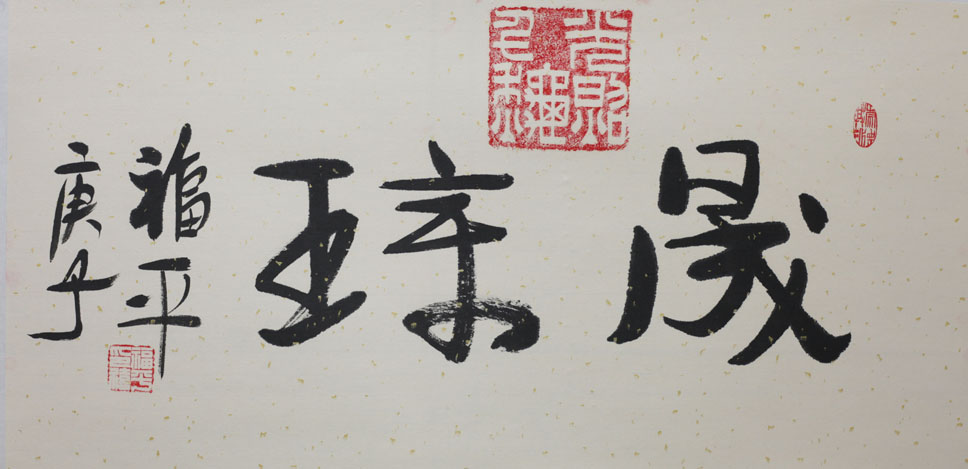 晟琼
福平
庚子